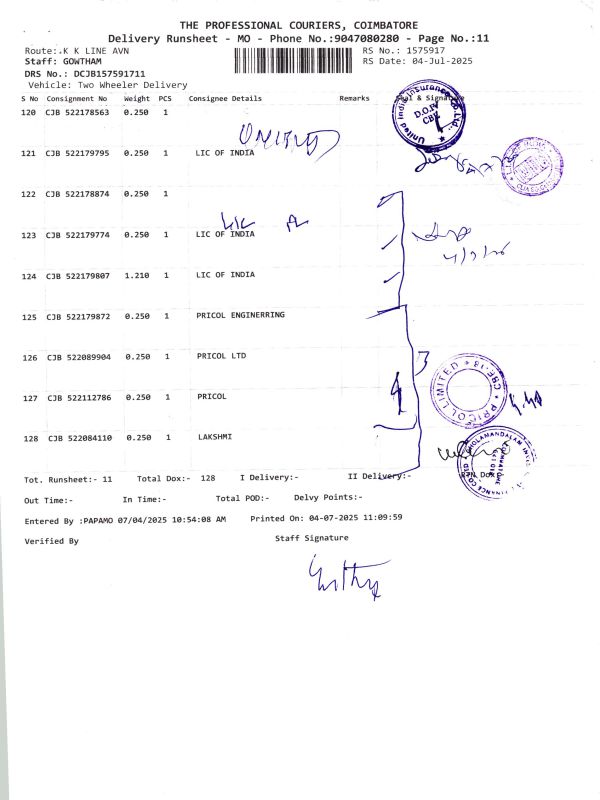 THE PROFESSIONAL COURIERS, COIMBATORE
Delivery Runsheet - MO - Phone No.:9047080280 - Page No.:11
Route: K K LINE AVN RS No.: 1575917
Staff: GOWTHAM RS Date: 04-Jul-2025
DRS No.: DCJB157591711
Vehicle: Two Wheeler Delivery
S No Consignment No Weight PCS Consignee Details Remarks Seal & Signature
120 CJB 522178563 0.250 1
UNITED
United India Insurance Co. Ltd.
D.O.
CBE
121 CJB 522179795 0.250 1 LIC OF INDIA
122 CJB 522178874 0.250 1
LIC
123 CJB 522179774 0.250 1 LIC OF INDIA
124 CJB 522179807 1.210 1 LIC OF INDIA
125 CJB 522179872 0.250 1 PRICOL ENGINERRING
126 CJB 522089904 0.250 1 PRICOL LTD
3
PRICOL LIMITED * CBE-18 *
127 CJB 522112786 0.250 1 PRICOL
128 CJB 522084110 0.250 1 LAKSHMI
CHOLAMANDALAM FINANCE CO LTD
Tot. Runsheet:- 11 Total Dox:- 128 I Delivery:- II Delivery:-
Out Time:- In Time:- Total POD:- Delvy Points:-
Entered By :PAPAMO 07/04/2025 10:54:08 AM Printed On: 04-07-2025 11:09:59
Verified By Staff Signature